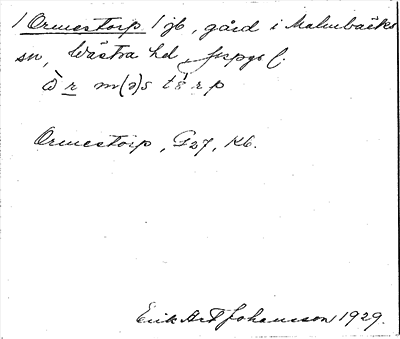 / Ormestorp / jb, gård i Malmbäcks
sn, Västra hd, Jkpgs l.
ò r m(ə)s t r p
Ormestorp, G27, Kb.
Erik Art Johansson 1929.